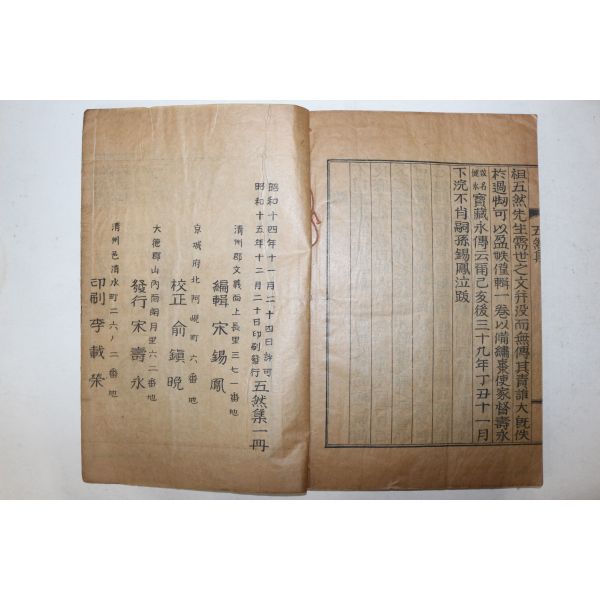 祖五然先生需世之文幷沒而無傳其責誰大旣佚
於過昫可以盈帙僅輯一卷以備繡棗使家督壽永
改名健永
寶藏永傳云爾己亥後三十九年丁丑十一月
下浣不肖嗣孫錫鳳泣跋
五然集
昭和十四年十一月二十四日許可
昭和十五年十二月二十日印刷發行
五然集一冊
淸州郡文義面上長里三七一番地
編輯 宋錫鳳
京城府北阿峴町六番地
校正 兪鎭晩
大德郡山內面陽月里六二番地
發行 宋壽永
淸州邑淸水町二六ノ二番地
印刷 李載榮